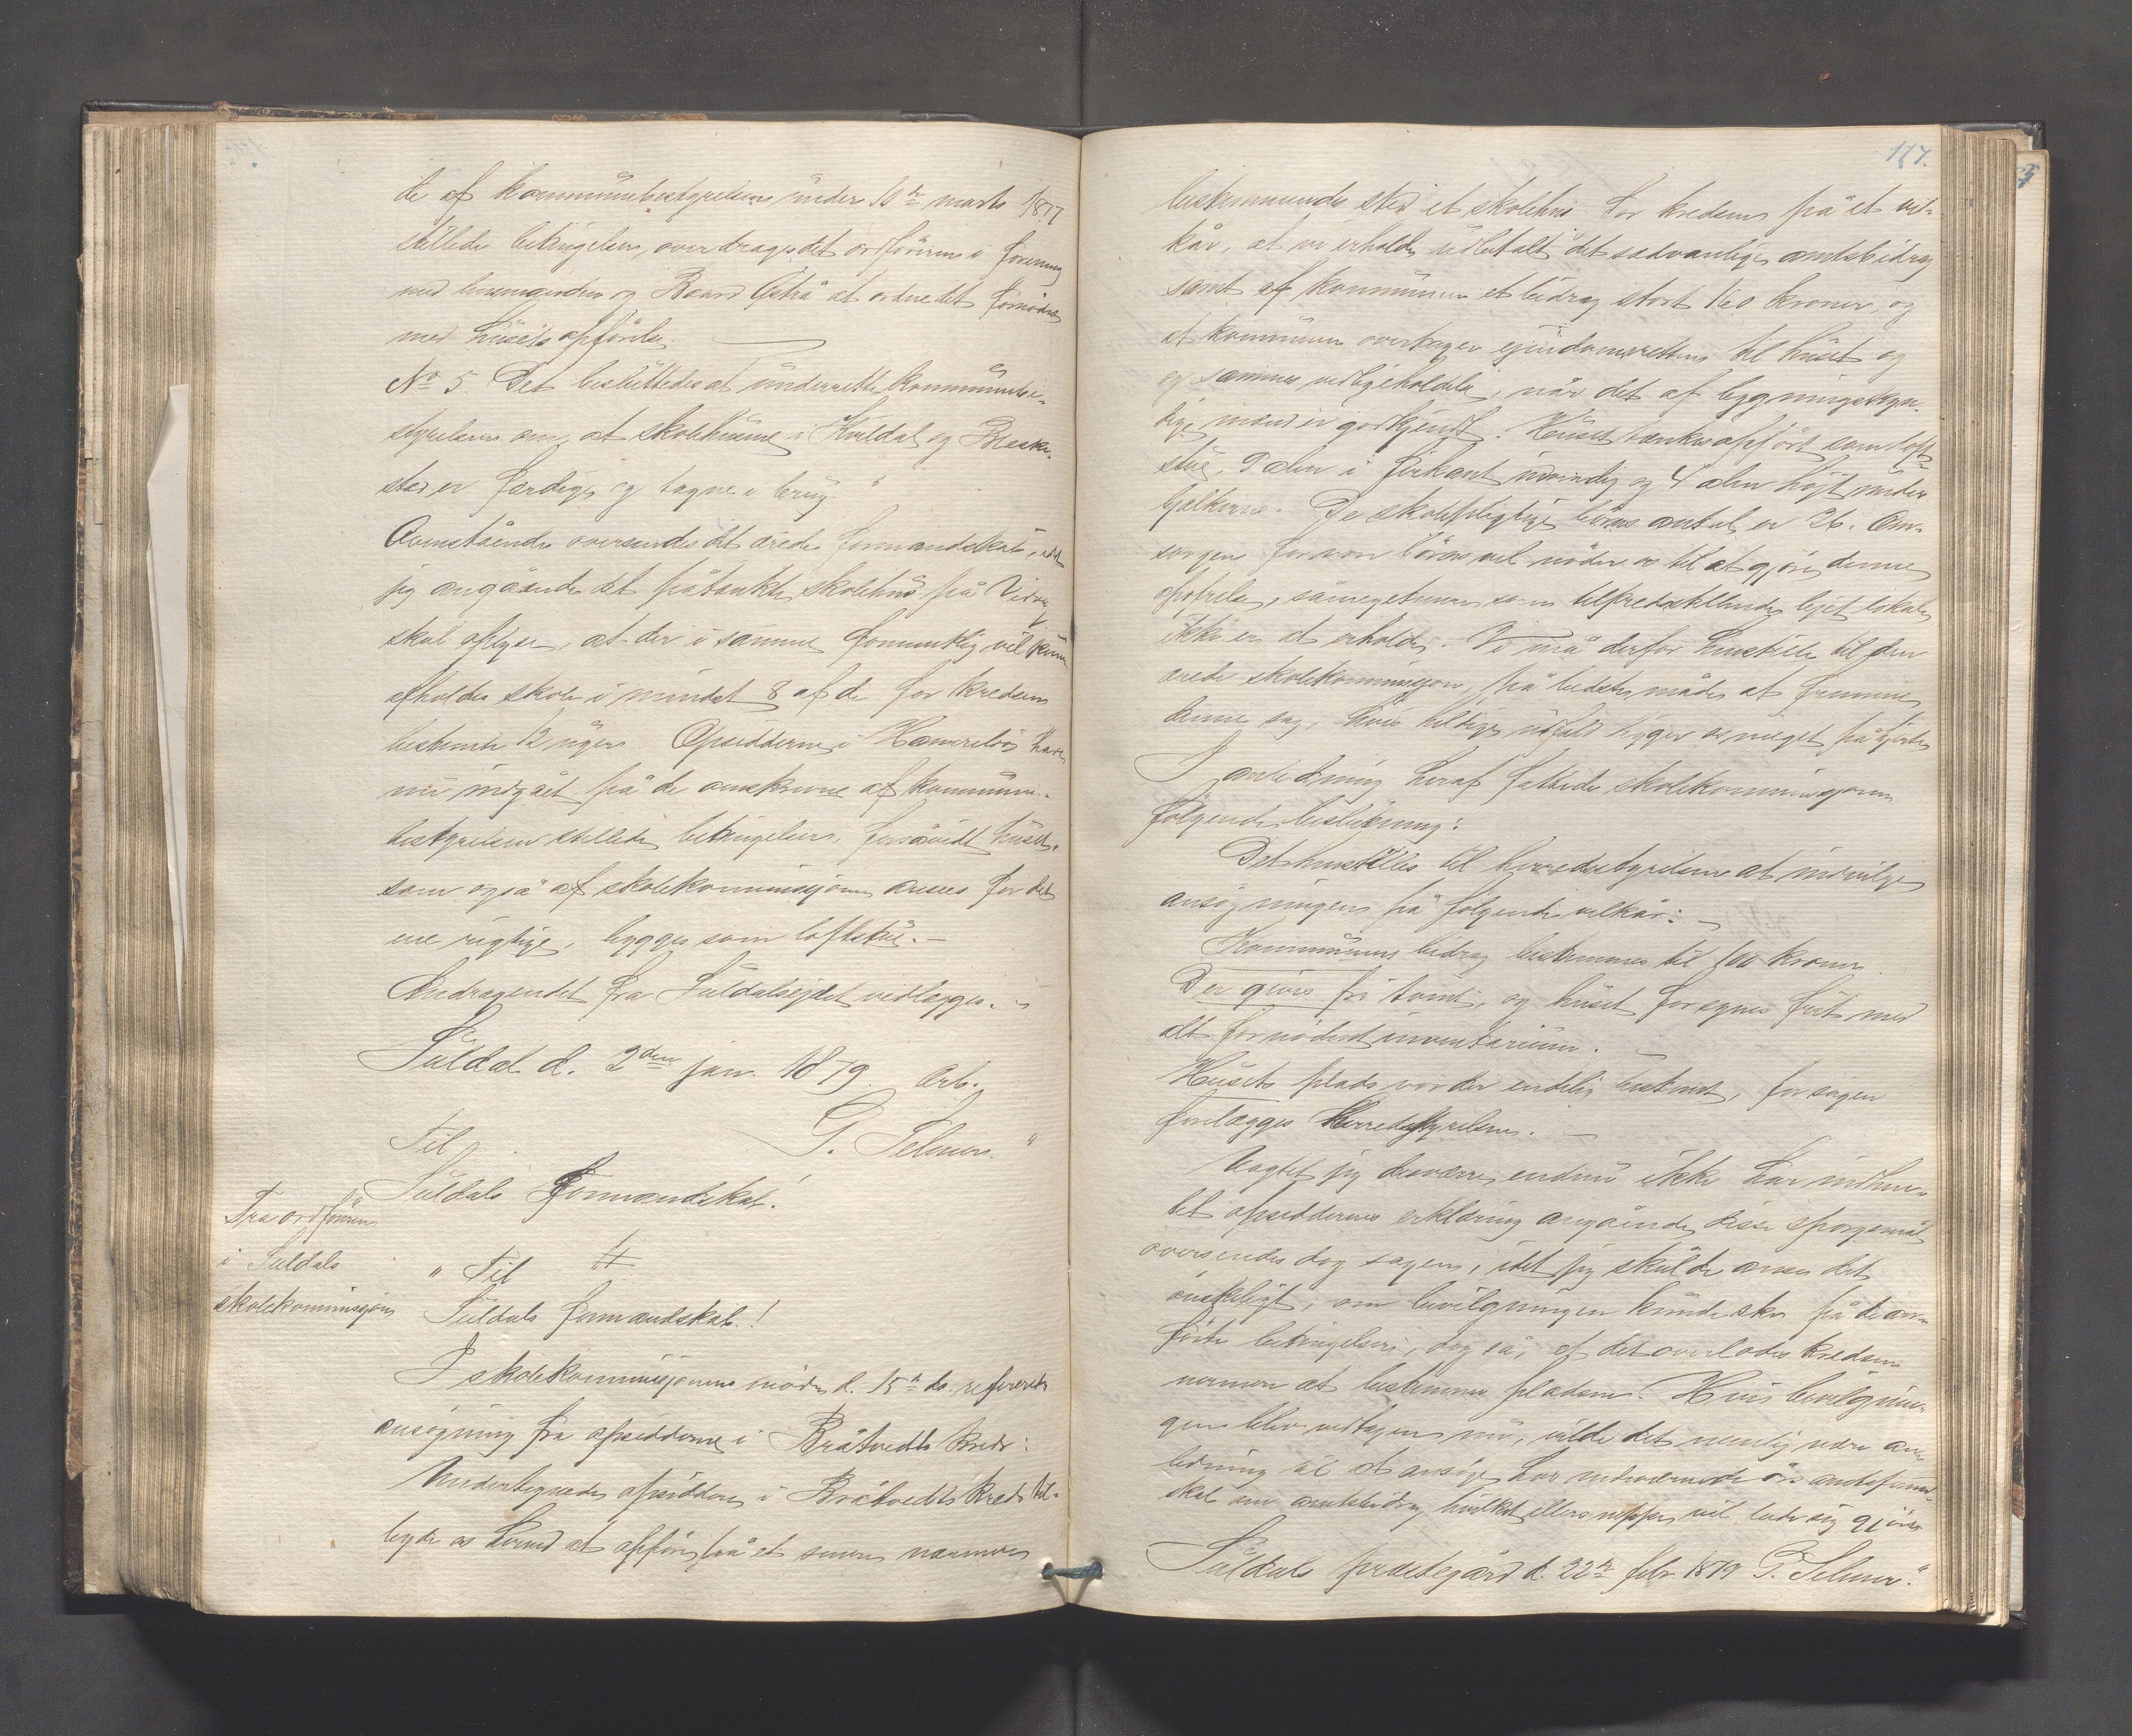 te af kommunebestyrelsen under 10de marts 1877
stillede betingelser, overdroges det ordføreren i forening
med lensmanden og Baard Østrå at ordne det fornødne
med husets opførelse.
No 5 Det besluttedes at underrette kommunebe-
styrelsen om, at skolehusene i Kvildal og
stad er færdige og tagne i brug."
Ovenstående oversendes det ærede formandskab, idet
jeg angående det påtænkte skolehus på
skal oplyse, at der i samme fornuftig vil kunne
afholdes skole i mindst 8 af de for kredsen
bestemte 12 uger. Opsidderne i have
nu indgået på de omskrevne af kommune-
bestyrelsen stillede betingelser, forsåvidt huset,
som også af skolekommissjonen ansees for det
ene rigtige, bygges som loftstue.-
Andragendet fra Suldalsejdet vedlægges.
Suldal d. 2den jan. 1879. Ærb.
G. Selmer."
Til
Suldals Formandskab!
Fra ordføreren
i Suldals
skolekommissjon
" Til
Suldals formandskab!
I skolekommissjonens møde d. 15de ds. refereredes
ansøgning fra opsidderne i Bråtvedts kreds:
Undertegnede opsiddere i Bråtvedts kreds til-
byde os herved at opføre på et senere nærmere
117.
bestemmendes sted et skolehus for kredsen på et vil-
kår, at vi erholde udbetalt det sædvanlige amtsbidrag
samt af kommunen et bidrag stort 160 kroner, og
at kommunen overtager ejendomsretten til huset og
og sammes vedligeholdelse, når det af bygningskyn-
dige mænd er godkjendt. Huset tænkes opført som loft-
stue, 9 alen i firkant indvendig og 4 alen højt under
bjælkerne. De skolepligtige børns antal er 26. Om-
sorgen for vore børns vel nøder os til at gjøre denne
opofrelse, såmeget mere som tilfredsstillende lejet lokale
ikke er at erholde. Vi må derfor henstille til den
ærede skolekommissjon, på bedste måde at fremme
denne sag, hvis heldige udfald ligger os meget på hjerte
I anledning heraf fattede skolekommissjonen
følgende beslutning:
Det henstilles til herredsstyrelsen at indvilge
ansøgningen på følgende vilkår:
Kommunens bidrag bestemmes til 100 kroner.
Der gives fri tomt, og huset forsynes frit med
alt fornødent inventarium.
Husets plads vorder endelig bestemt, før sagen
forelægges Herredsstyrelsen.
Uagtet jeg desværre endnu ikke har indhen-
tet opsiddernes erklæring angående disse spørgsmål
oversendes dog sagen, idet jeg skulde anse det
ønskeligt, om bevilgningen kunde ske på de an-
førte betingelser, dog så, at det overlodes kredsen
nærmere at bestemme pladsen. Hvis bevilgnin-
gen blev vedtagen nu, vilde det nemlig være an-
ledning til at ansøge hos indeværende års amtsformand-
skab om amtsbidrag, hvilket ellers neppe vil lade sig gjøre
Suldals præstegård d. 22de febr. 1879 G. Selmer."